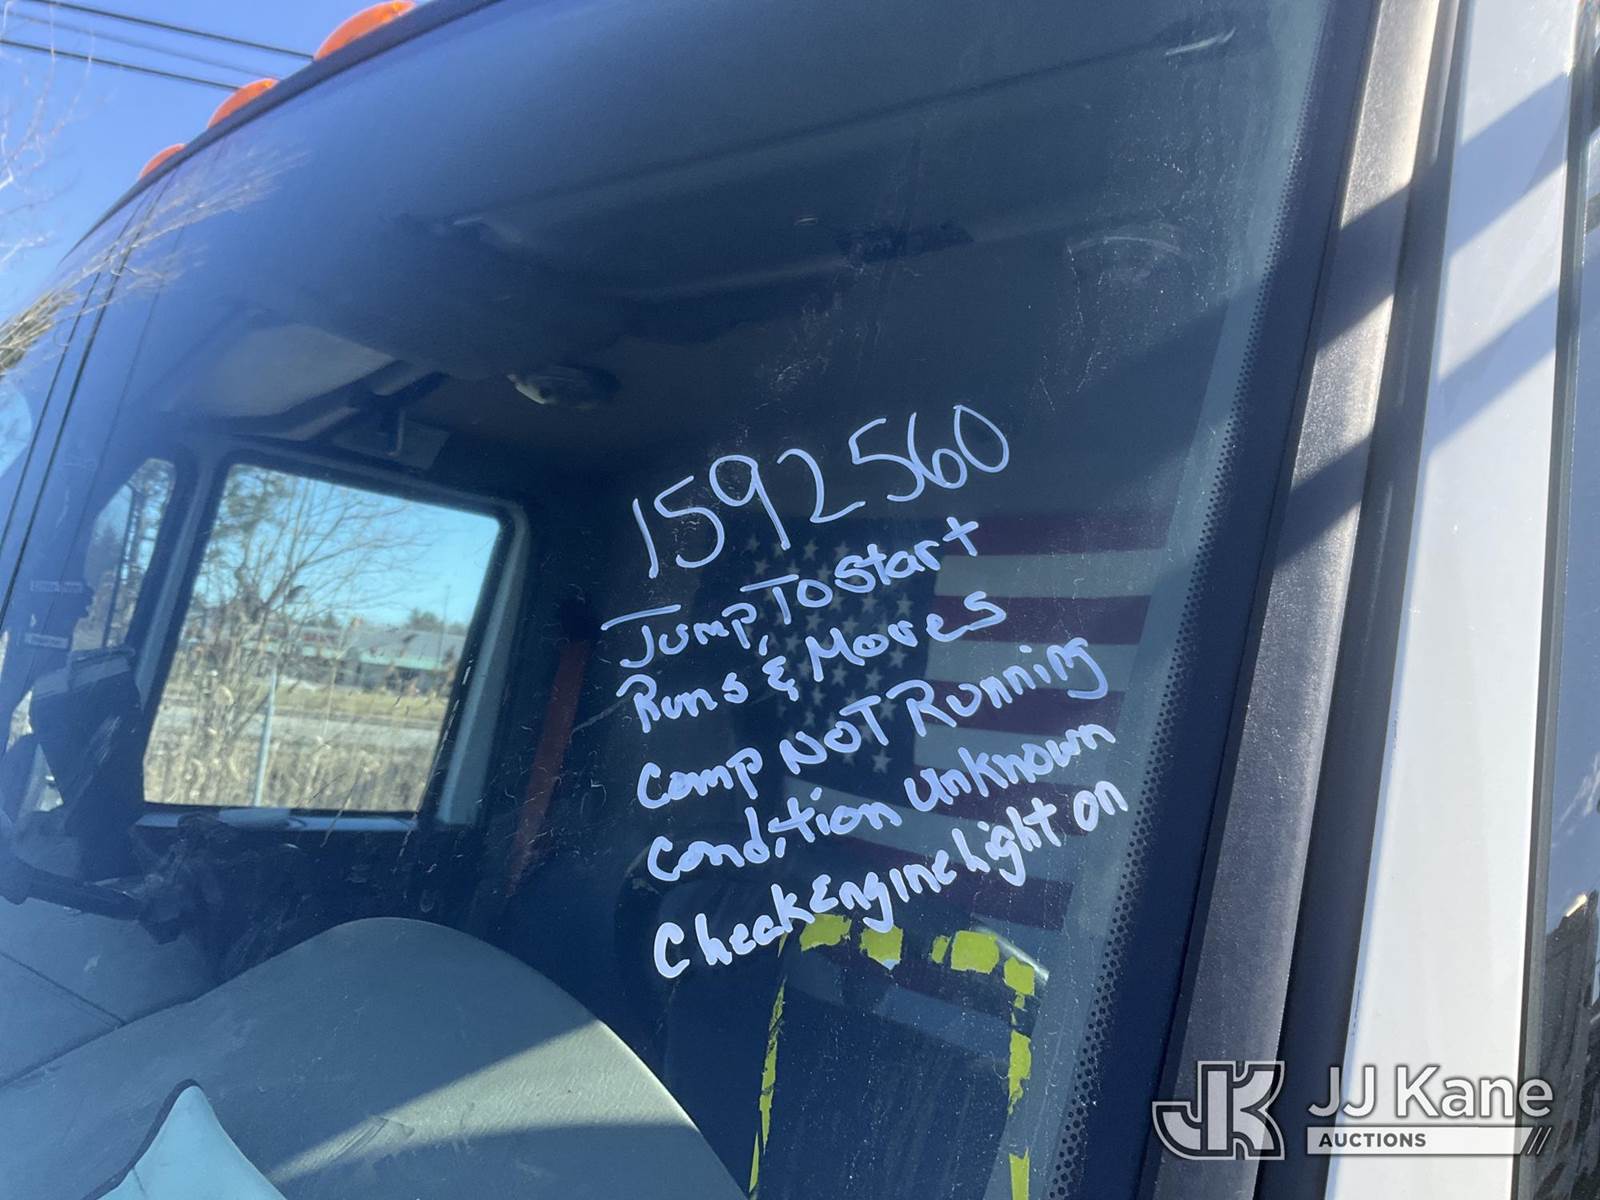 1592560
Jump, To Start
Runs & Moves
Comp NOT Running
Condition Unknown
Check Engine Light on
JK JJ Kane
AUCTIONS